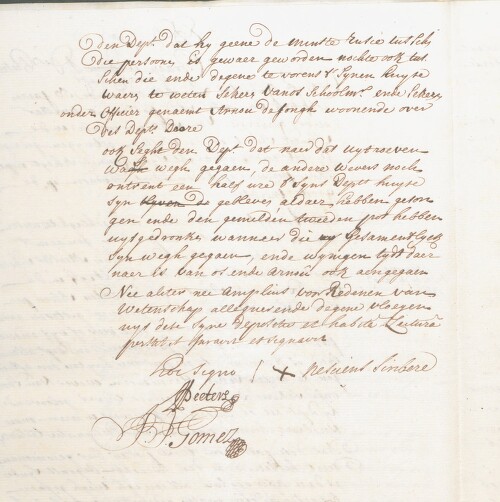 den Dep.^t dat hy geene de minste rusie tusschen
die persoone is gewaer geworden nochte ook tus
schen die ende degene te vorens t' synen huyse
waere te weten sekere Vanos Schoolm.^r ende sekere
onder Officier genaemt Arnou de Jongh woonende over
des Dep.^ts Deure
ook seght den Dep.^t dat naer dat uytroeven
was wegh gegaen, de andere wevers noch
ontrent een half ure t' Syns Dep.^ts huyse
syn gebleven aldaer hebben geson
gen ende den gemelden tweeden pot hebben
uytgedroncken wanneer die gesamentlyck
syn wegh gegaen, ende wynigen tydt daer
naer is van os ende Arnou ook aengegaen
Nec aliter nec Amplius voor Redenen van
Wetenschap allegueerende degene vloeyen
uyt dese syne depositie et habitâ Lecturâ
persistit juravit et signavit
hoc signo + nesciens scribere
Peeters
Gomez